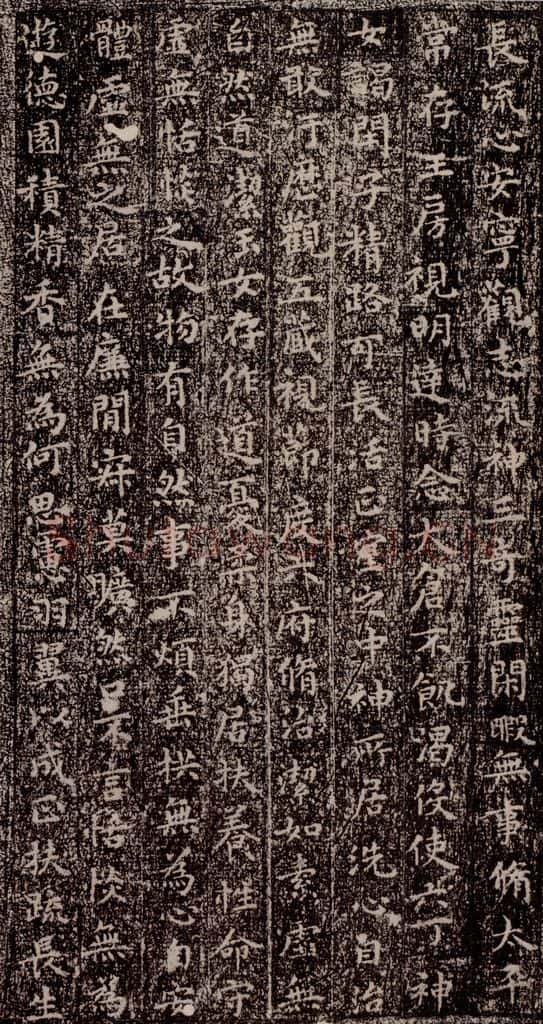 長流心安寧觀志流神三奇靈閑暇無事脩太平
常存玉房視明達時念大倉不飢渴役使六丁神
女謁閉子精路可長活正室之中神所居洗心自治
無敢汙歷觀五藏視節度六府脩治潔如素虛無
自然道潔玉女存作道憂柔身獨居扶養性命守
虛無恬惔之故物有自然事不煩垂拱無為心自安
體虛無之居在廉間寂莫曠然口不言恬惔無為
遊德園積精香無為何思慮羽翼以成正扶疏長生